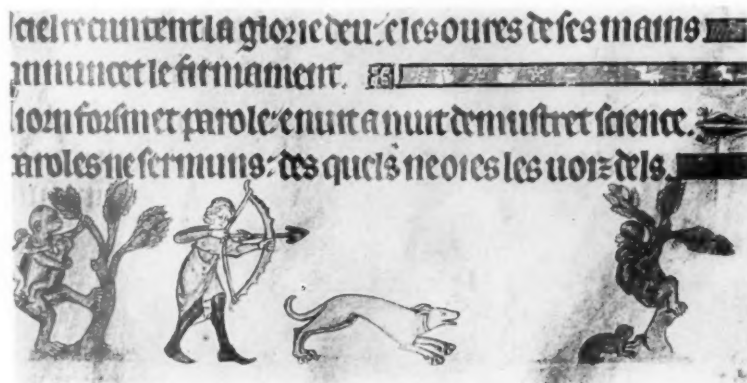 ciel recuntent la glorie deu: e les oures de ses mains
annuncet le firmament.
iorn forsmet parole: e nuit a nuit demustret science.
aroles ne sermuns: des quels ne oies les uoiz dels.